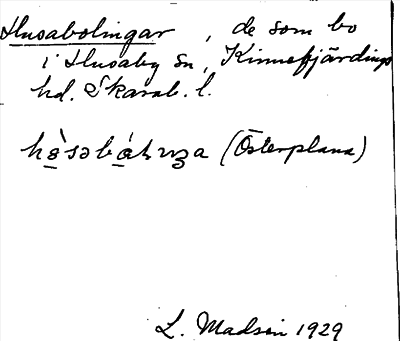 Husabolingar, de som bo
i Husaby sn, Kinnefjärdings
hd. Skarab. l.
(Österplana)
L. Madsen 1929